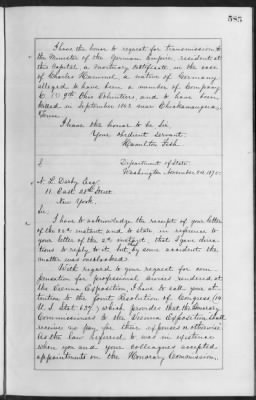 585
I have the honor to request for transmission to
the Minister of the German Empire, resident at
this Capital a mortuary certificate in the case
of Charles Hammel, a native of Germany
alleged to have been a member of Company
C. 9th Ohio Volunteers and to have been
killed in September 1863 near Chickamauga,
Tenn.
I have the honor to be Sir,
Your obedient servant.
Hamilton Fish.
Department of State.
Washington November 24, 187
N. L. Derby Esq.
11 East 28th Street
New York.
Sir,
I have to acknowledge the receipt of your letter
of the instant and to state in reference to
your letter of the instant, that I gave direc-
tions to reply to it, but by some accident the
matter was overlooked.
With regard to your request for com-
pensation for professional services rendered at
the Vienna Exposition I have to call your at-
tention to the Joint Resolution of Congress (14
U. S. Stat 637) which provides that the honorary
Commissioners to the Vienna Exposition shall
receive no pay for their expenses or otherwise.
As the law referred to was in existence
when you and your colleagues accepted
appointments on the Honorary Commission,